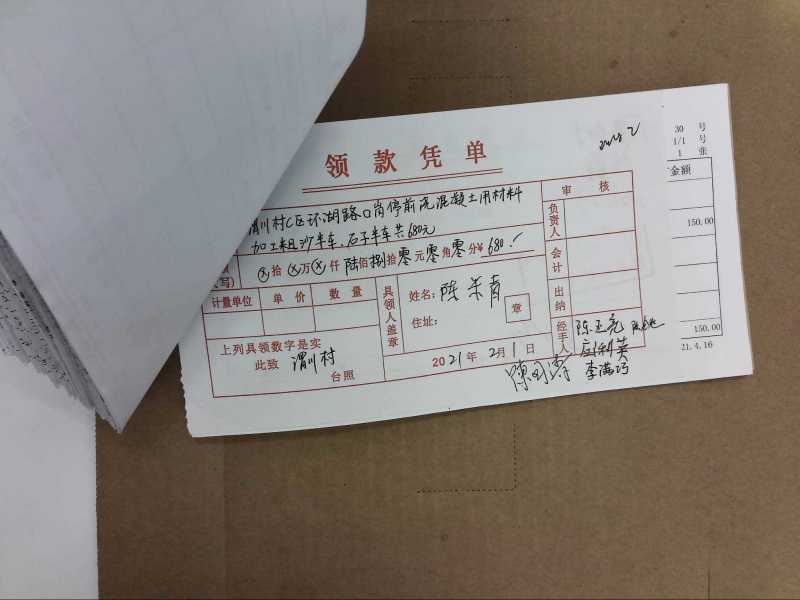 领款凭单
渭川村C区环湖路口岗停前浇混凝土用材料
加工 粗沙半车、石子半车共680元
写) ⊗拾⊗万⊗仟陆佰捌拾零元零角零分¥680.-
计量单位 单价 数量
具领人盖章
姓名:陈 青
住址:
章
上列具领数字是实
此致 渭川村
台照
2021年2月1日
审核
负责人
会计
出纳
经手人
陈玉亮
应利英
李满巧
30 号
1/1 号
1 张
金额
150.00
150.00
21.4.16